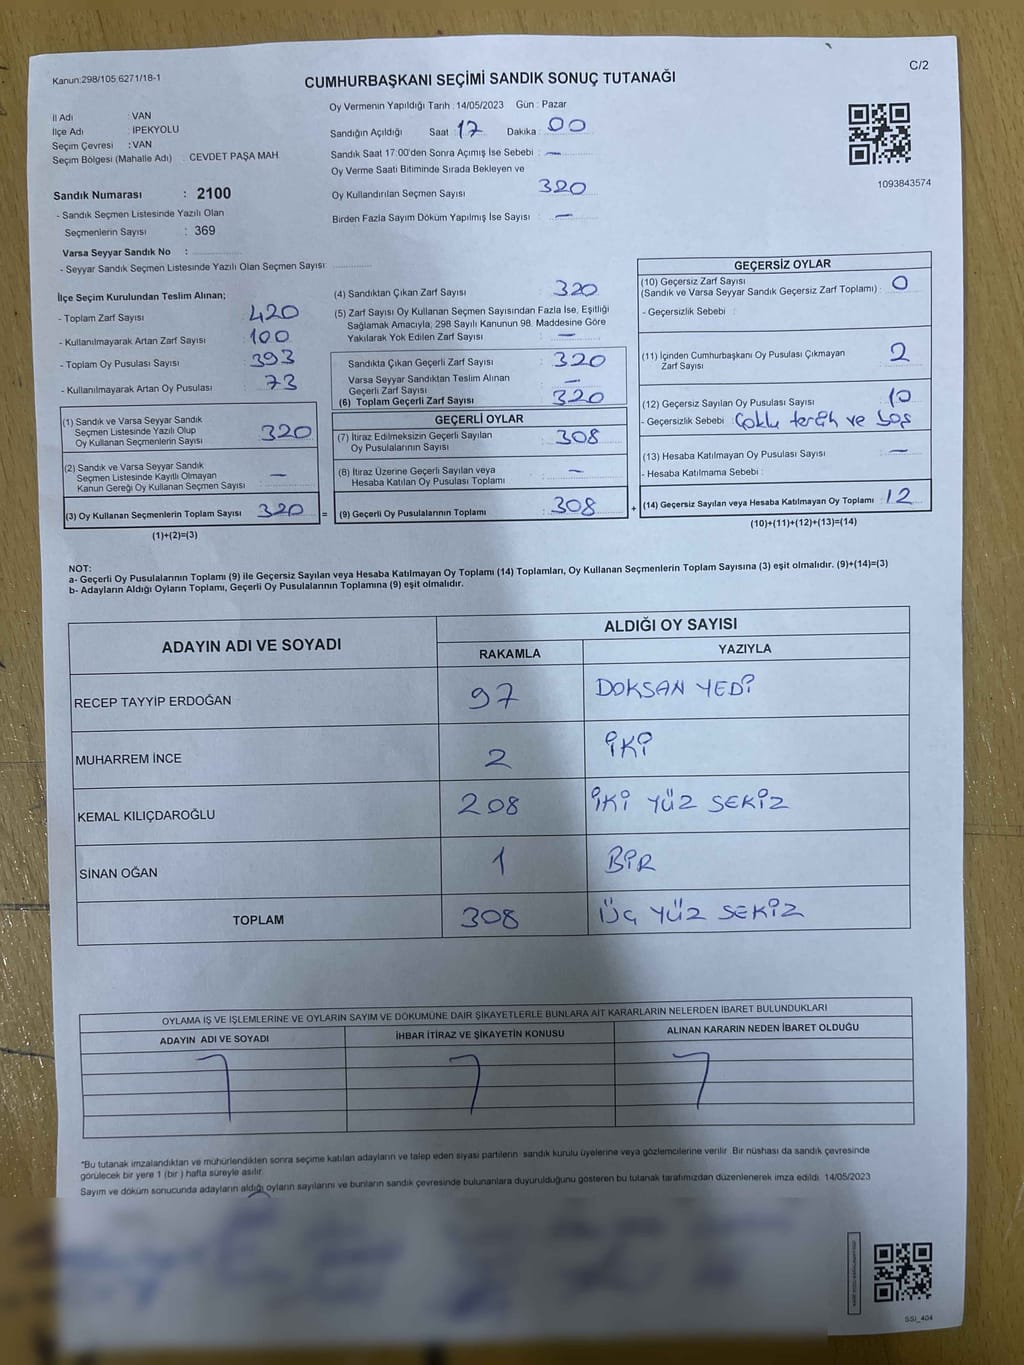 Kanun:298/105,6271/18-1
C/2
CUMHURBAŞKANI SEÇİMİ SANDIK SONUÇ TUTANAĞI
İl Adı : VAN
İlçe Adı : İPEKYOLU
Seçim Çevresi : VAN
Seçim Bölgesi (Mahalle Adı) : CEVDET PAŞA MAH
Sandık Numarası : 2100
- Sandık Seçmen Listesinde Yazılı Olan
Seçmenlerin Sayısı : 369
Varsa Seyyar Sandık No :
- Seyyar Sandık Seçmen Listesinde Yazılı Olan Seçmen Sayısı:
Oy Vermenin Yapıldığı Tarih :14/05/2023 Gün : Pazar
Sandığın Açıldığı Saat : 17 Dakika : 00
Sandık Saat 17:00'den Sonra Açımış İse Sebebi : —
Oy Verme Saati Bitiminde Sırada Bekleyen ve
Oy Kullandırılan Seçmen Sayısı : 320
Birden Fazla Sayım Döküm Yapılmış İse Sayısı : —
1093843574
İlçe Seçim Kurulundan Teslim Alınan;
- Toplam Zarf Sayısı : 420
- Kullanılmayarak Artan Zarf Sayısı : 100
- Toplam Oy Pusulası Sayısı : 393
- Kullanılmayarak Artan Oy Pusulası : 73
(1) Sandık ve Varsa Seyyar Sandık
Seçmen Listesinde Yazılı Olup
Oy Kullanan Seçmenlerin Sayısı : 320
(2) Sandık ve Varsa Seyyar Sandık
Seçmen Listesinde Kayıtlı Olmayan
Kanun Gereği Oy Kullanan Seçmen Sayısı : —
(3) Oy Kullanan Seçmenlerin Toplam Sayısı : 320 =
(1)+(2)=(3)
(4) Sandıktan Çıkan Zarf Sayısı : 320
(5) Zarf Sayısı Oy Kullanan Seçmen Sayısından Fazla İse, Eşitliği
Sağlamak Amacıyla, 298 Sayılı Kanunun 98. Maddesine Göre
Yakılarak Yok Edilen Zarf Sayısı : —
Sandıkta Çıkan Geçerli Zarf Sayısı : 320
Varsa Seyyar Sandıktan Teslim Alınan
Geçerli Zarf Sayısı : —
(6) Toplam Geçerli Zarf Sayısı : 320
GEÇERLİ OYLAR
(7) İtiraz Edilmeksizin Geçerli Sayılan
Oy Pusulalarının Sayısı : 308
(8) İtiraz Üzerine Geçerli Sayılan veya
Hesaba Katılan Oy Pusulası Toplamı : —
(9) Geçerli Oy Pusulalarının Toplamı : 308 +
GEÇERSİZ OYLAR
(10) Geçersiz Zarf Sayısı
(Sandık ve Varsa Seyyar Sandık Geçersiz Zarf Toplamı) : 0
- Geçersizlik Sebebi :
(11) İçinden Cumhurbaşkanı Oy Pusulası Çıkmayan
Zarf Sayısı : 2
(12) Geçersiz Sayılan Oy Pusulası Sayısı : 10
- Geçersizlik Sebebi : Çoklu tercih ve boş
(13) Hesaba Katılmayan Oy Pusulası Sayısı : —
- Hesaba Katılmama Sebebi :
(14) Geçersiz Sayılan veya Hesaba Katılmayan Oy Toplamı : 12
(10)+(11)+(12)+(13)=(14)
NOT:
a- Geçerli Oy Pusulalarının Toplamı (9) ile Geçersiz Sayılan veya Hesaba Katılmayan Oy Toplamı (14) Toplamları, Oy Kullanan Seçmenlerin Toplam Sayısına (3) eşit olmalıdır. (9)+(14)=(3)
b- Adayların Aldığı Oyların Toplamı, Geçerli Oy Pusulalarının Toplamına (9) eşit olmalıdır.
ADAYIN ADI VE SOYADI
ALDIĞI OY SAYISI
RAKAMLA YAZIYLA
RECEP TAYYİP ERDOĞAN 97 DOKSAN YEDİ
MUHARREM İNCE 2 İKİ
KEMAL KILIÇDAROĞLU 208 İKİ YÜZ SEKİZ
SİNAN OĞAN 1 BİR
TOPLAM 308 ÜÇ YÜZ SEKİZ
OYLAMA İŞ VE İŞLEMLERİNE VE OYLARIN SAYIM VE DÖKÜMÜNE DAİR ŞİKAYETLERLE BUNLARA AİT KARARLARIN NELERDEN İBARET BULUNDUKLARI
ADAYIN ADI VE SOYADI İHBAR İTİRAZ VE ŞİKAYETİN KONUSU ALINAN KARARIN NEDEN İBARET OLDUĞU
*Bu tutanak imzalandıktan ve mühürlendikten sonra seçime katılan adayların ve talep eden siyasi partilerin sandık kurulu üyelerine veya gözlemcilerine verilir. Bir nüshası da sandık çevresinde
görülecek bir yere 1 (bir ) hafta süreyle asılır.
Sayım ve döküm sonucunda adayların aldığı oyların sayılarını ve bunların sandık çevresinde bulunanlara duyurulduğunu gösteren bu tutanak tarafımızdan düzenlenerek imza edildi. 14/05/2023
SSI_404